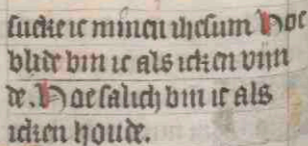 sucke ic minen ihesum Hoe
blide bin ic als icken vijn
de. Hoe salich bin ic als
icken houde.